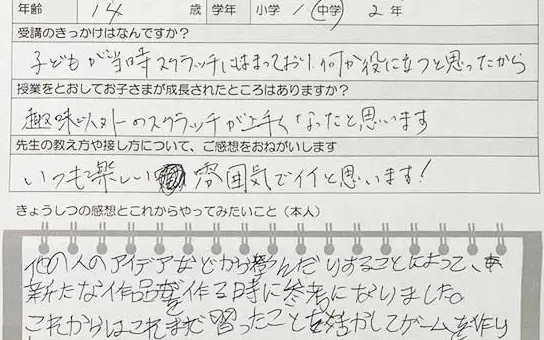 年齢 14 歳 学年 小学 / 中学 2 年
受講のきっかけはなんですか?
子どもが当時スクラッチにはまっており、何か役に立つと思ったから
授業をとおしてお子さまが成長されたところはありますか?
趣味以外のスクラッチが上手くなったと思います
先生の教え方や接し方について、ご感想をおねがいします
いつも楽しい雰囲気でイイと思います!
きょうしつの感想とこれからやってみたいこと（本人）
他の人のアイデアなどから学んだりすることによって、
新たな作品を作る時に参考になりました。
これからはこれまで習ったことを活かしてゲームを作り